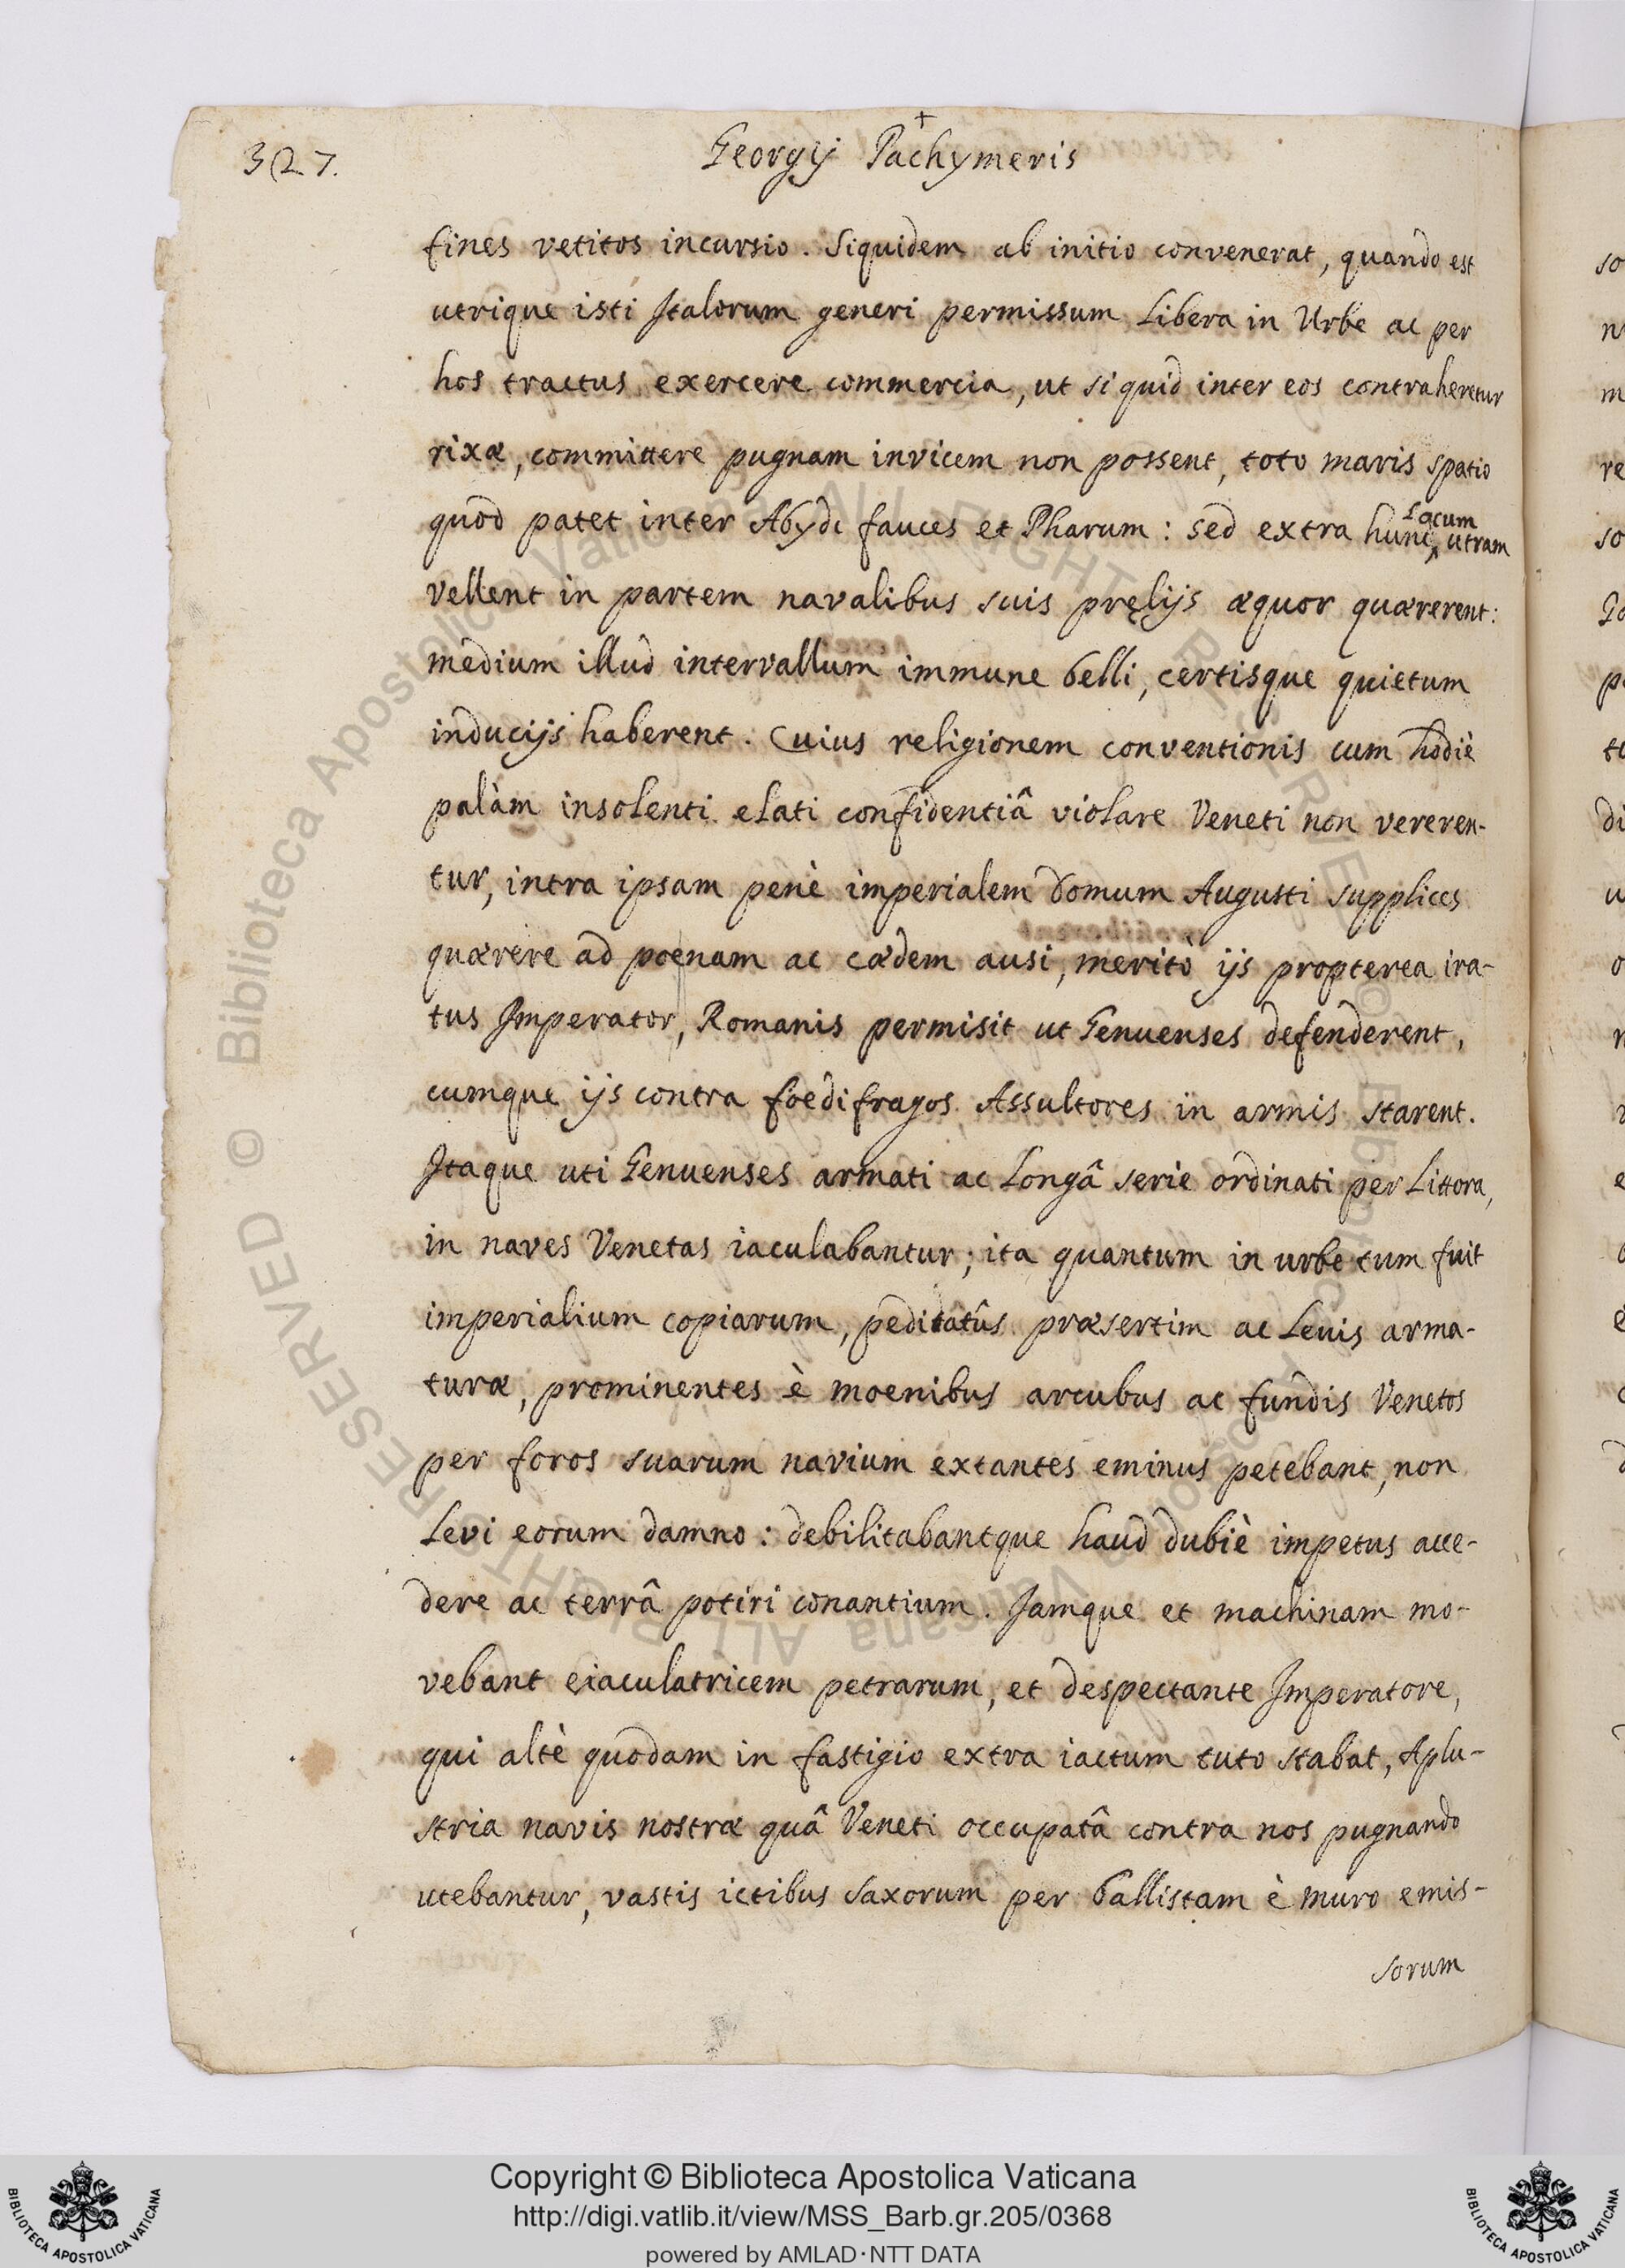 327.
Georgij Pachymeris
fines vetitos incursio. Siquidem ab initio convenerat, quando est
utrique isti Italorum generi permissum Libera in Urbe ac per
hos tractus exercere commercia, ut si quid inter eos contraheretur
rixæ, committere pugnam invicem non possent, toto maris spatio
quod patet inter Abydi fauces et Pharum: sed extra hunc Locum utram
vellent in partem navalibus suis pręlijs æquor quærerent:
medium illud intervallum immune belli, certisque quietum
inducijs haberent. Cuius religionem conventionis cum hodiè
palàm insolenti elati confidentiâ violare Veneti non vereren-
tur, intra ipsam penè imperialem Domum Augusti supplices
quærere ad poenam ac cædem ausi, meritò ijs propterea ira-
tus Imperator, Romanis permisit ut Genuenses defenderent,
cumque ijs contra foedifragos Assultores in armis starent.
Itaque uti Genuenses armati ac Longâ serie ordinati per Littora,
in naves Venetas iaculabantur; ita quantum in urbe tum fuit
imperialium copiarum, peditatûs præsertim ac Levis arma-
turæ, prominentes è moenibus arcubus ac fundis Venetos
per foros suarum navium extantes eminus petebant, non
Levi eorum damno: debilitabantque haud dubiè impetus acce-
dere ac terrâ potiri conantium. Jamque et machinam mo-
vebant eiaculatricem petrarum, et despectante Imperatore,
qui altè quodam in fastigio extra iactum tuto stabat, Aplu-
stria navis nostræ quâ Veneti occupatâ contra nos pugnando
utebantur, vastis ictibus saxorum per ballistam è muro emis-
sorum
Copyright © Biblioteca Apostolica Vaticana
http://digi.vatlib.it/view/MSS_Barb.gr.205/0368
powered by AMLAD·NTT DATA